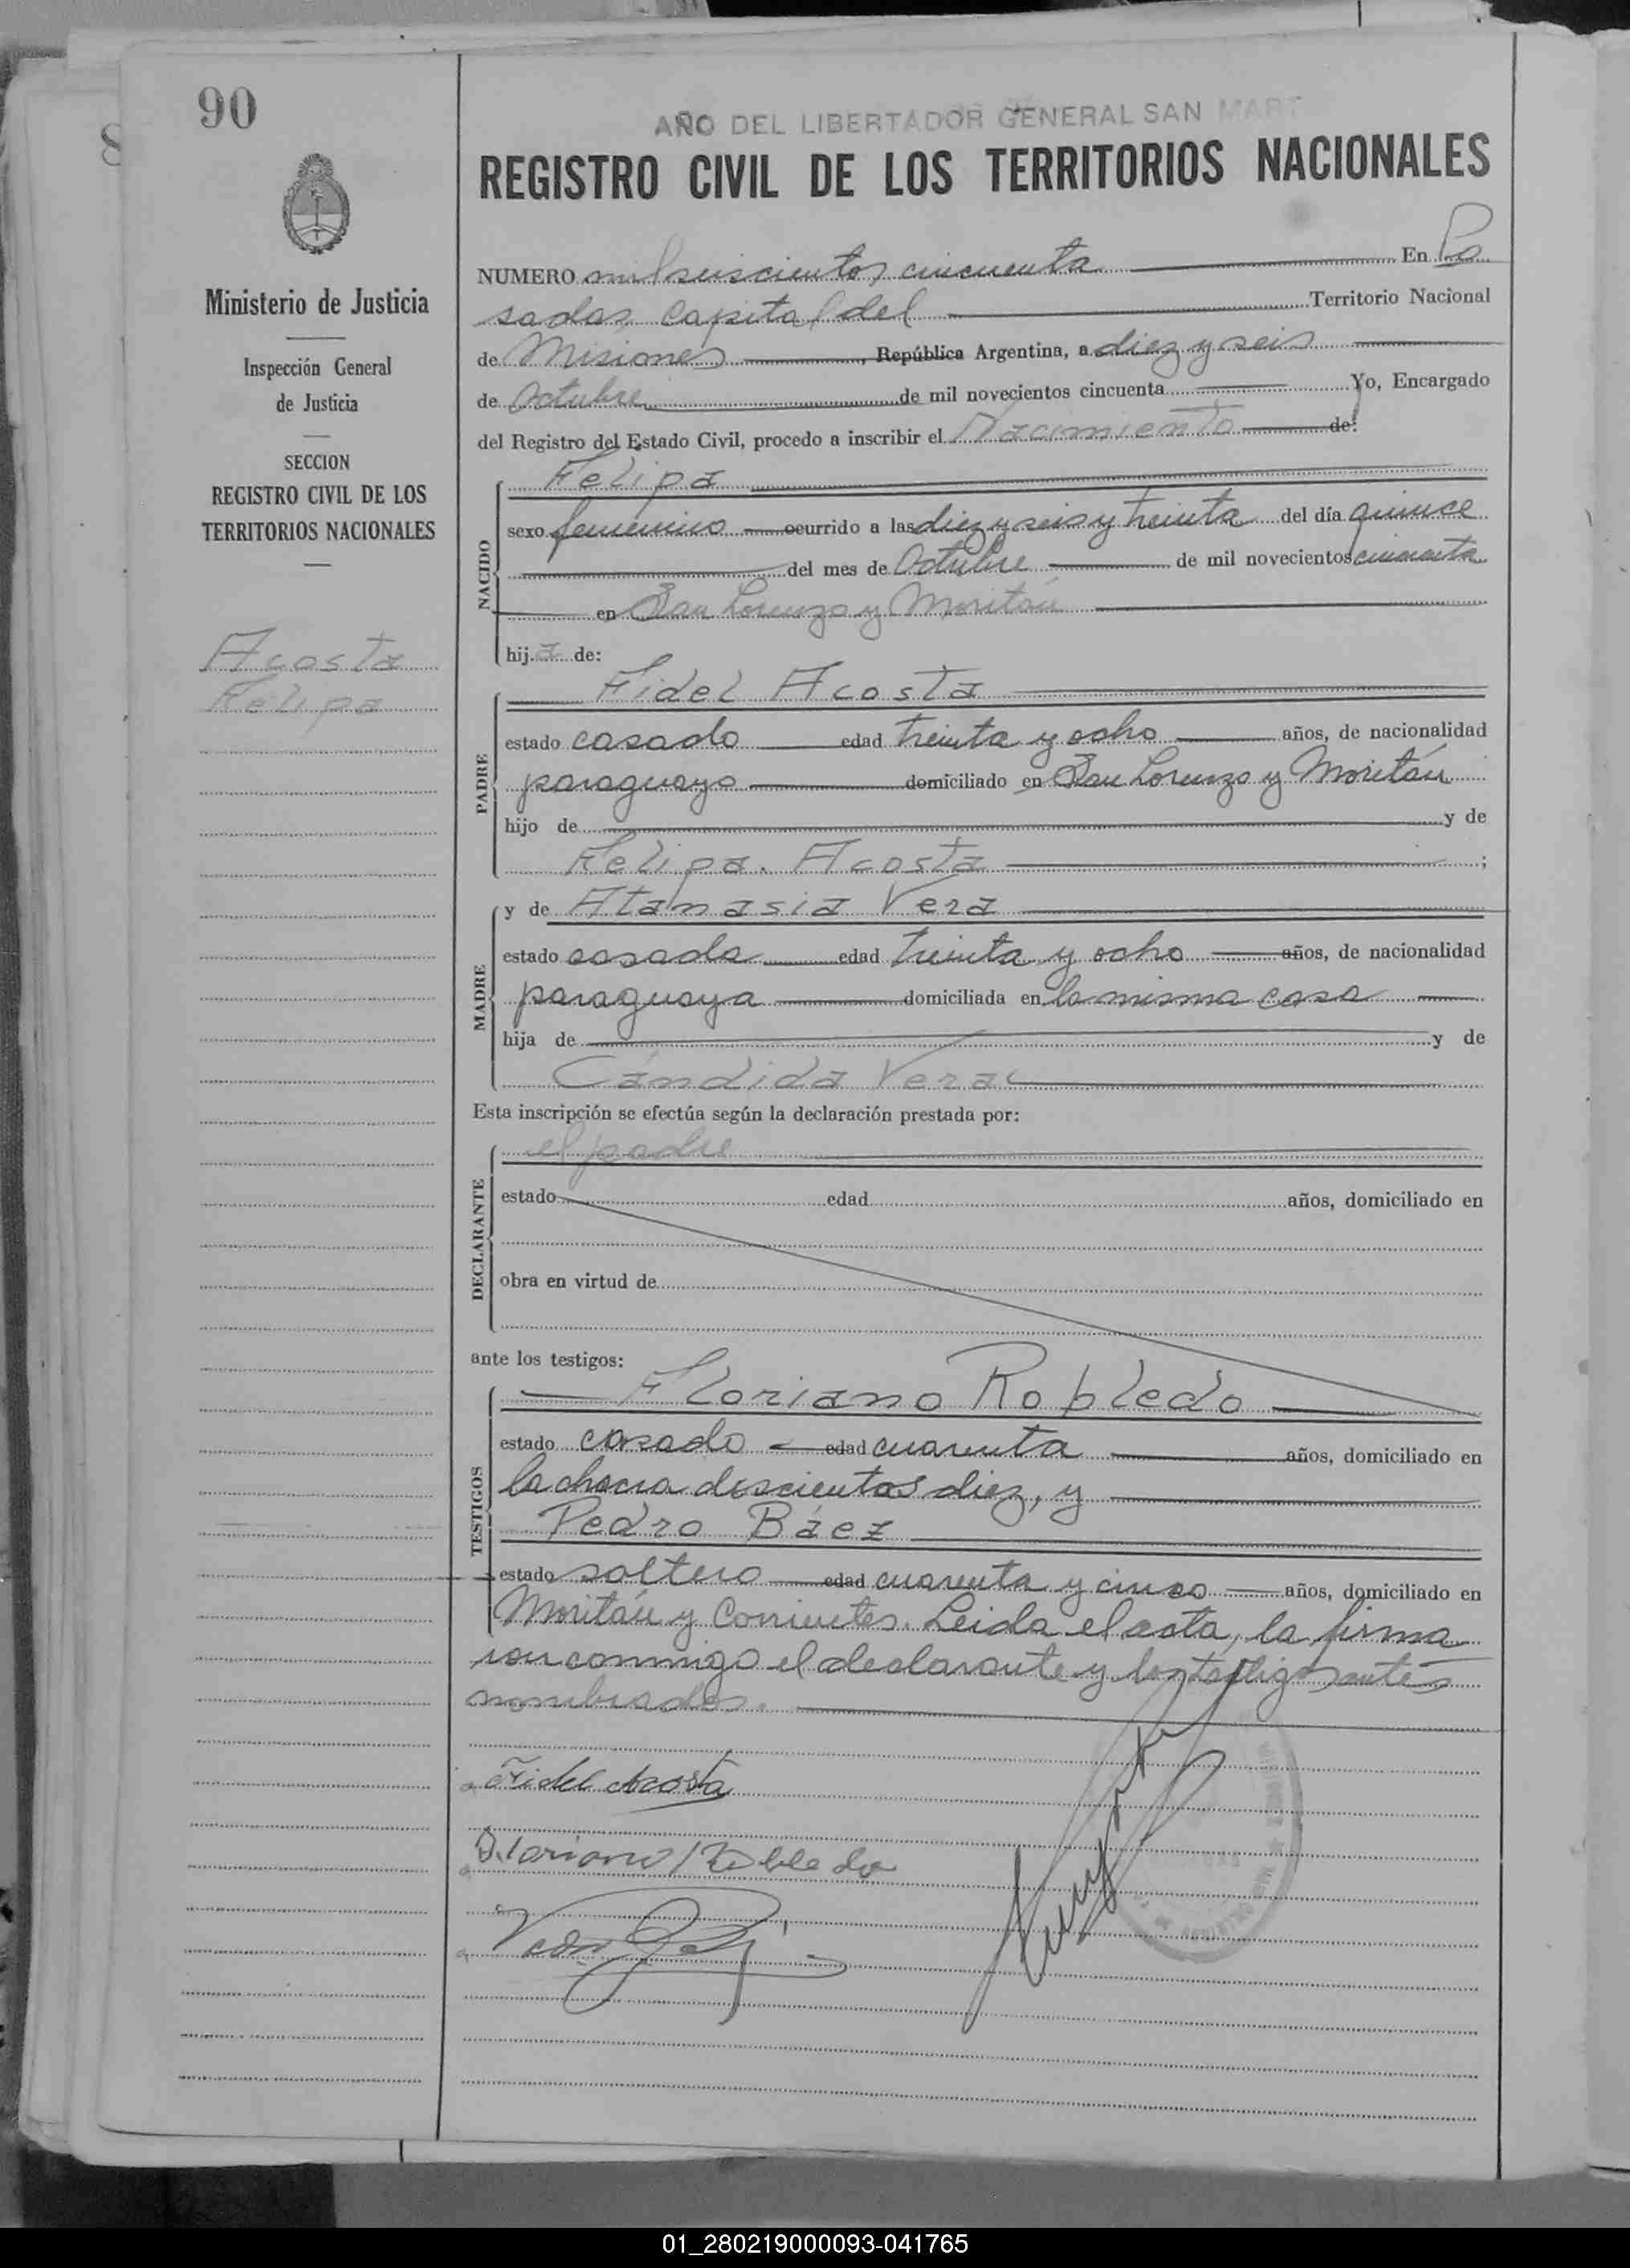 90
AÑO DEL LIBERTADOR GENERAL SAN MART
REGISTRO CIVIL DE LOS TERRITORIOS NACIONALES
Ministerio de Justicia
Inspección General
de Justicia
SECCION
REGISTRO CIVIL DE LOS
TERRITORIOS NACIONALES
Acosta
Felipa
NUMERO mil seiscientos cincuenta En Po
sadas, Capital del Territorio Nacional
de Misiones, República Argentina, a diez y seis
de Octubre de mil novecientos cincuenta Yo, Encargado
del Registro del Estado Civil, procedo a inscribir el Nacimiento de:
NACIDO
Felipa
sexo femenino ocurrido a las diez y seis y treinta del día quince
del mes de Octubre de mil novecientos cincuenta
en San Lorenzo y Moritán
hija de:
PADRE
Fidel Acosta
estado casado edad treinta y ocho años, de nacionalidad
paraguayo domiciliado en San Lorenzo y Moritán
hijo de y de
Felipa Acosta ;
MADRE
y de Atanasia Vera
estado casada edad treinta y ocho años, de nacionalidad
paraguaya domiciliada en la misma casa
hija de y de
Cándida Vera
Esta inscripción se efectúa según la declaración prestada por:
DECLARANTE
el padre
estado edad años, domiciliado en
obra en virtud de
ante los testigos:
TESTIGOS
Floriano Robledo
estado casado edad cuarenta años, domiciliado en
la chacra doscientos diez, y
Pedro Báez
estado soltero edad cuarenta y cinco años, domiciliado en
Moritán y Corrientes. Leida el acta, la firma
ron conmigo el declarante y los testigos antes
nombrados.
Fidel Acosta
Floriano Robledo
01_280219000093-041765